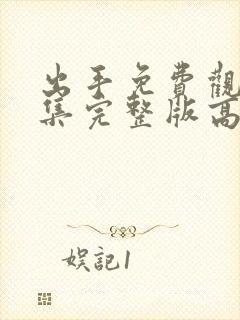 出手免費觀
集完整版高
娛記1